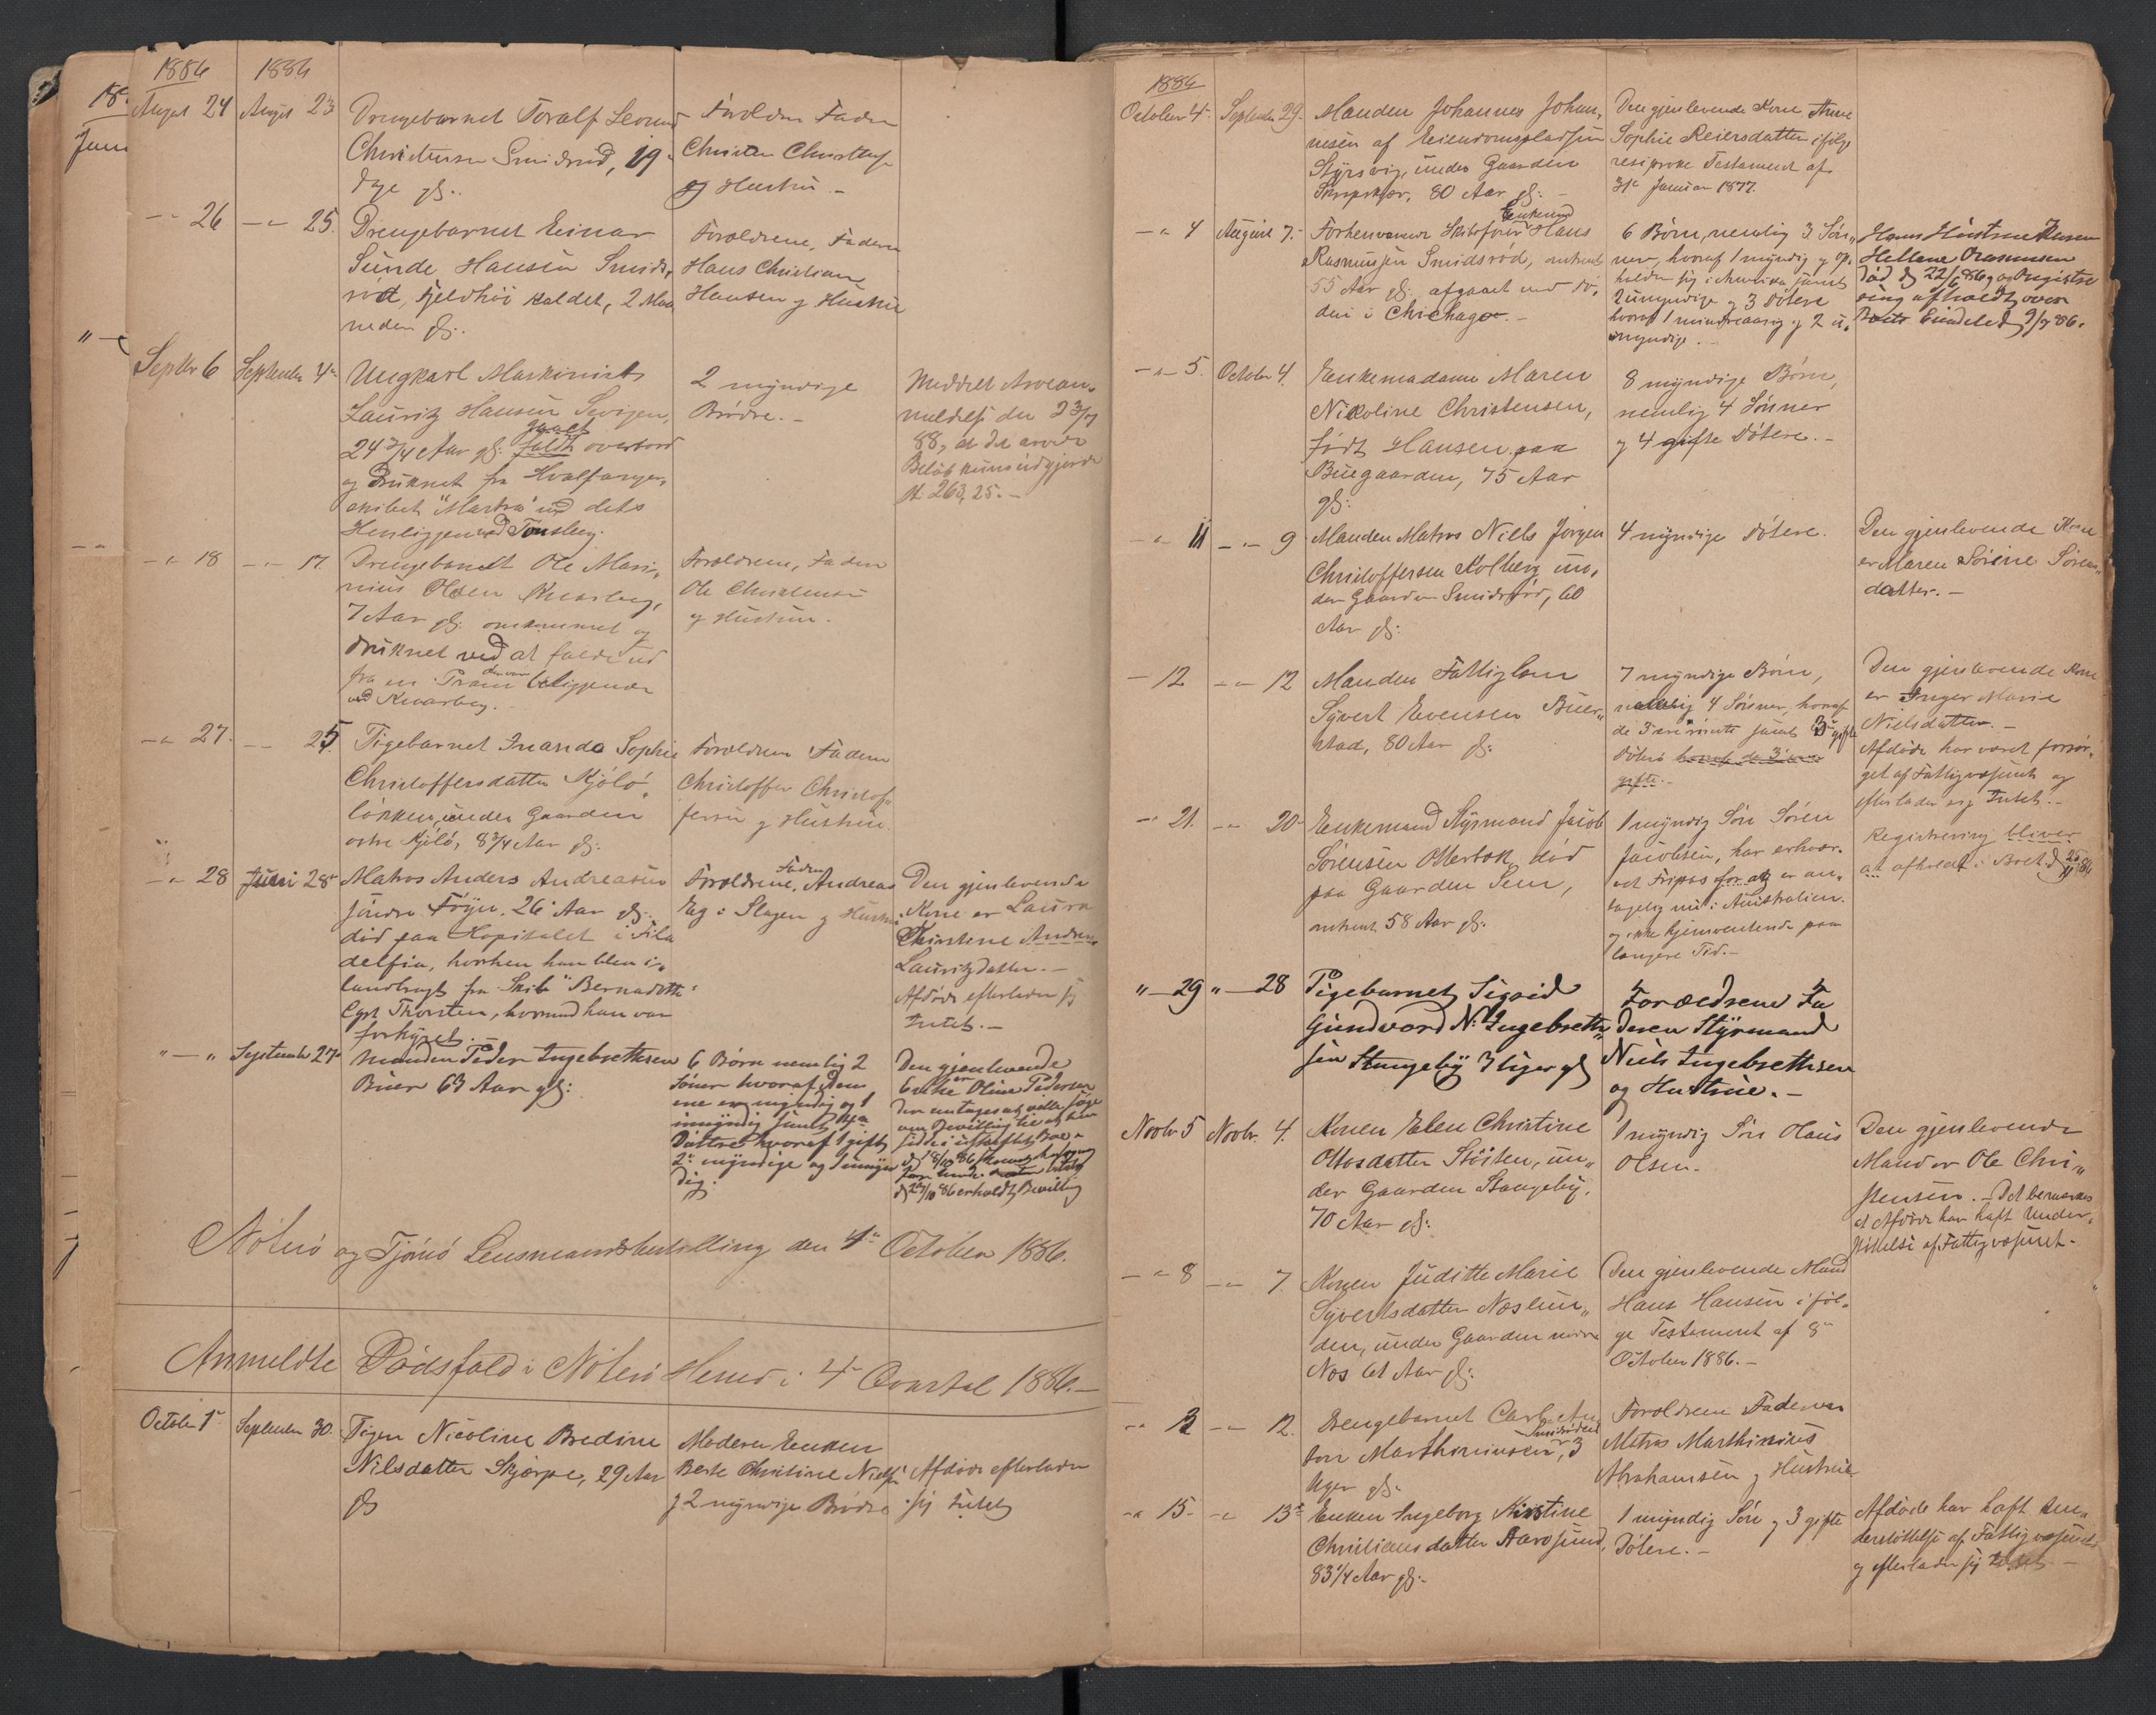 1886
1886
August 24
August 23
Drengebarnet Toralf Leonard
Christensen Smidsrud, 19
dge gl..
Foreldre Faderen
Christen Christensen
og Hustru. -
-"- 26
-"- 25.
Drengebarnet Einar
Sunde Hansen Smids-
rød, Fjeldhøi kaldet, 2 Maa
neder gl..
Forældrene, Faderen
Hans Christian
Hansen og Hustru
Septbr 6
September 4de
Ungkarl Maskinist
Lauritz Hansen
24 3/4 Aar gl. faldt overbord
og druknet fra Hvalfanger-
skibet "Martha" ved dets
Henliggen ved Tønsberg.
2 myndige
Brødre. -
Meddelt Arvean-
meldelse den 23/7
88, at det arvede
Beløb kuns udgjorde
kr. 263,25. -
-"- 18
-"- 17.
Drengebarnet Ole Mari-
nius Olsen Knarberg,
7 Aar gl. omkommet og
druknet ved at falde ud
fra en Pram der var beliggende
ved Knarberg.
Forældrene, Faderen
Ole Christensen
og Hustru.
-"- 27.
-"- 25.
Pigebarnet Inanda Sophie
Christoffersdatter Kjøló-
løkken, under Gaarden
østre Kjøló, 8 3/4 Aar gl.
Forældrene Faderen
Christoffer Christof-
fersen og Hustru.
-"- 28
Juni 28de
Matros Anders Andreasen
søndre Føyn, 26 Aar gl.
død paa Hospitalet i Fila
delfia, hvorhen han blev i-
landbragt fra Skib "Bernadotte"
Cpt Thorsten, hvormed han var
forhyret. -
Forældrene, Faderen Andreas
Eeg i Slagen og Hustru
Den gjenlevende
Kone er Laura
Christine Andrea
Lauritzdatter. -
Afdøde efterlader sig
Intet. -
"-"
September 27de
Manden Peder Ingebrethsen
Buer 63 Aar gl:
6 Børn nemlig 2
Sønner hvoraf den
ene er myndig og 1
umyndig samt 4re
Døttre hvoraf 1 gift
2de myndige og 1 umyn
dig.
Den gjenlevende
Enke er Oline Pedersen
der antages at ville søge
om Bevilling til at hen
sidde i uskiftet Boe
d 27/10 86 erholdt Bevilling
Nøterø og Tjømø Lensmandsbestilling den 4de October 1886.
Anmeldte Dødsfald i Nøterø Herred i 4de Qvartal 1886. -
October 1ste
September 30.
Pigen Nicoline Bredine
Nilsdatter Skjerpe, 29 Aar
gl
Moderen Enken
Berte Christine Nielsen
og 2 myndige Brødre
Afdøde efterlader
sig Intet
1886
October 4de
September 29.
Manden Johannes Johan-
nesen af Eiendomspladsen
Styrsvig, under Gaarden
80 Aar gl. -
Den gjenlevende Kone Anne
Sophie Reiersdatter ifølge
resiproke Testament af
31te Januar 1877.
-"- 4
August 7.
Forhenværende Skibsfører Enkemand Hans
Rasmussen Smidsrød, omtrent
55 Aar gl. afgaaet ved Dø-
den i Chichago. -
6 Børn, nemlig 3 Søn-
ner, hvoraf 1 myndig og op-
holder sig i Amerika samt
2 umyndige og 3 Døtere
hvoraf 1 mindreaarig og 2 u-
myndige. -
Hans Hustrue
Hellene Rasmussen
død d 22/6 86 og Registre
ring afholdt over
Boets Eiendele d 9/7 86.
-"- 5.
October 4.
Enkemadame Maren
Nikoline Christensen,
født Hansen paa
Buegaarden, 75 Aar
gl:
8 myndige Børn,
nemlig 4 Sønner
og 4 gifte Døtere. -
-"- 11
-"- 9
Manden Matros Niels Jørgen
Christoffersen Kolberg un-
der Gaarden Smidsrød, 60
Aar gl:
4 myndige Døtere.
Den gjenlevende Kone
er Maren Sørine Søren-
datter. -
- 12
-"- 12
Manden Fattiglem
Syvert Evensen Buer-
stad, 80 Aar gl.
7 myndige Børn,
nemlig 4 Sønner, hvoraf
de 3 samt 3 gifte
Døtere hvoraf de 3 ere
gifte. -
Den gjenlevende Kone
er Inger Marie
Nielsdatter. -
Afdøde har været forsør-
get af Fattigvæsenet og
efterlader sig Intet. -
-"- 21.
-"- 20
Enkemand Styrmand Jacob
Sørensen Otterbæk, død
paa Gaarden Sem,
omtrent 58 Aar gl.
1 myndig Søn Søren
Jacobsen, har erhver-
vet Fripas for og er an-
tagelig nu i Australien.
og ikke hjemventende paa
længere Tid. -
Registrering bliver
at afholdt i Boet d 25/11 86
"- 29
"- 28
Pigebarnet Sigrid
Gundvord N: Ingebreth-
sen Stangeby 3 Uger gl
Forældrene Fa
deren Styrmand
Niels Ingebrethsen
og Hustrue. -
Novbr 5
Novbr. 4.
Konen Elen Christine
Ottosdatter Støiten, un-
der Gaarden Stangeby,
70 Aar gl:
1 myndig Søn Hans
Olsen.
Den gjenlevende
Mand er Ole Chri-
stensen. - Det bemærkes
at Afdøde har haft Under-
støttelse af Fattigvæsenet -
-"- 8
-"- 7.
Konen Juditte Marie
Syvertsdatter Næslun-
den, under Gaarden nordre
Næs 61 Aar gl.
Den gjenlevende Mand
Hans Hansen i føl-
ge Testament af 8de
October 1886. -
-"- 13
-"- 12.
Drengebarnet Carl An
ton Marthiniusen Smidsrød, 3
Uger gl.
Forældrene Faderen
Matros Marthinius
Abrahamsen og Hustrue
-"- 15 -
-"- 13de
Enken Ingeborg Kirstine
Christiansdatter Aarøsund,
83 1/4 Aar gl. -
1 myndig Søn og 3 gifte
Døtere. -
Afdøde har haft Un-
derstøttelse af Fattigvæsenet
og efterlader sig Intet -